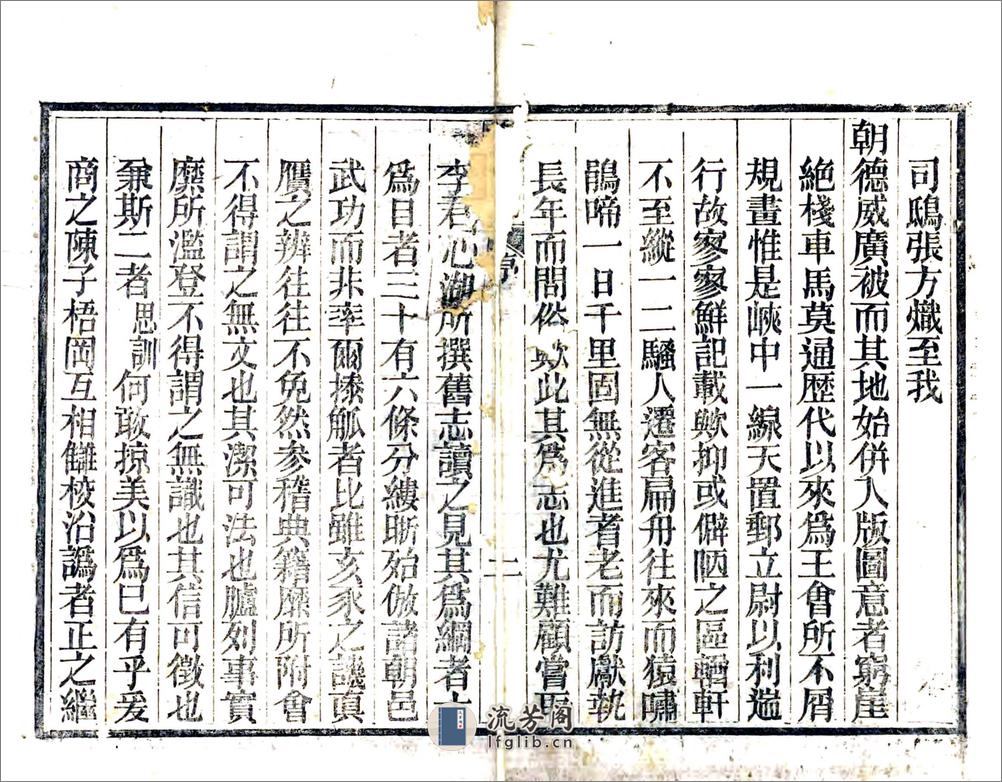 司鴟張方熾至我
朝德威廣被而其地始併入版圖意者窮崖
絕棧車馬莫通歷代以來為王會所不屑
規畫惟是峽中一線天置郵立尉以利遄
行故寥寥鮮記載歟抑或僻陋之區輶軒
不至縱一二騷人遷客扁舟往來而猿嘯
鵑啼一日千里固無從進耆老而訪獻執
長年而問俗歟此其為志也尤難顧嘗取
序
二
李君心湖所撰舊志讀之見其為綱者十
為目者三十有六條分縷晰殆倣諸朝邑
武功而非率爾操觚者比雖亥豕之譏真
贋之辨往往不免然參稽典籍靡所附會
不得謂之無文也其潔可法也臚列事實
靡所濫登不得謂之無識也其信可徵也
兼斯二者思訓何敢掠美以為已有乎爰
商之陳子梧岡互相讎校沿譌者正之繼
流芳阁
lfglib.cn